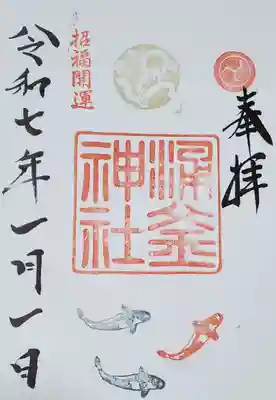 奉拝
招福開運
涌釜
神社
令和七年一月一日